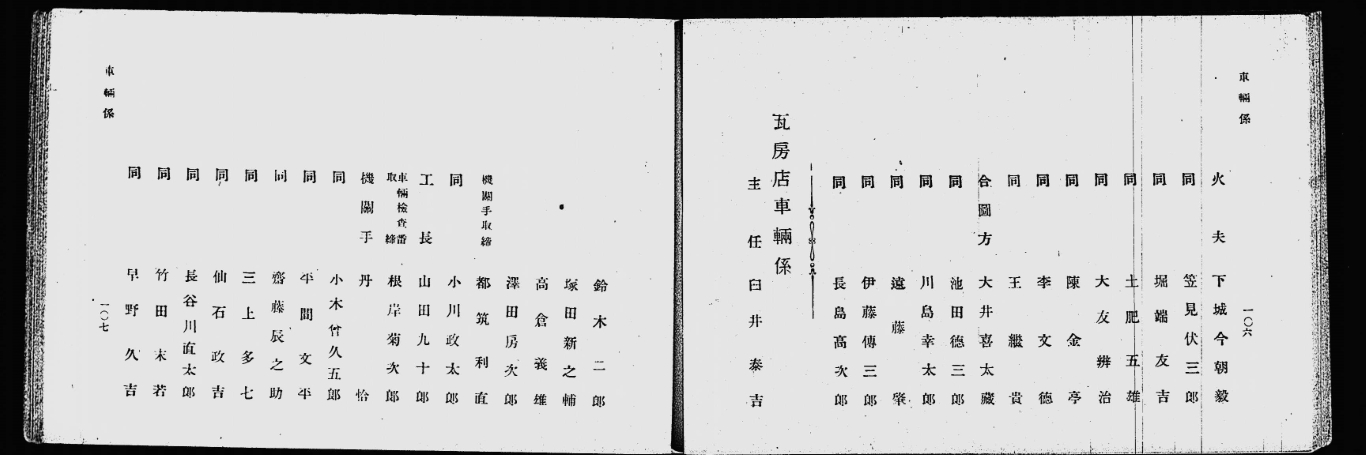 車輛係
一〇六
火夫 下城今朝毅
同 笠見伏三郎
同 堀端友吉
同 土肥五雄
同 大友辨治
同 陳金亭
同 李文德
同 王繼貴
合圖方 大井喜太藏
同 池田德三郎
同 川島幸太郎
同 遠藤肇
同 伊藤傳三郎
同 長島高次郎
瓦房店車輛係
主任 臼井泰吉
鈴木二郎
塚田新之輔
高倉義雄
澤田房次郎
機關手取締 都筑利直
同 小川政太郎
工長 山田九十郎
車輛檢查番取締 根岸菊次郎
機關手 丹恰
同 小木曾久五郎
同 平間文平
同 齋藤辰之助
同 三上多七
同 仙石政吉
同 長谷川直太郎
同 竹田末若
同 早野久吉
車輛係
一〇七